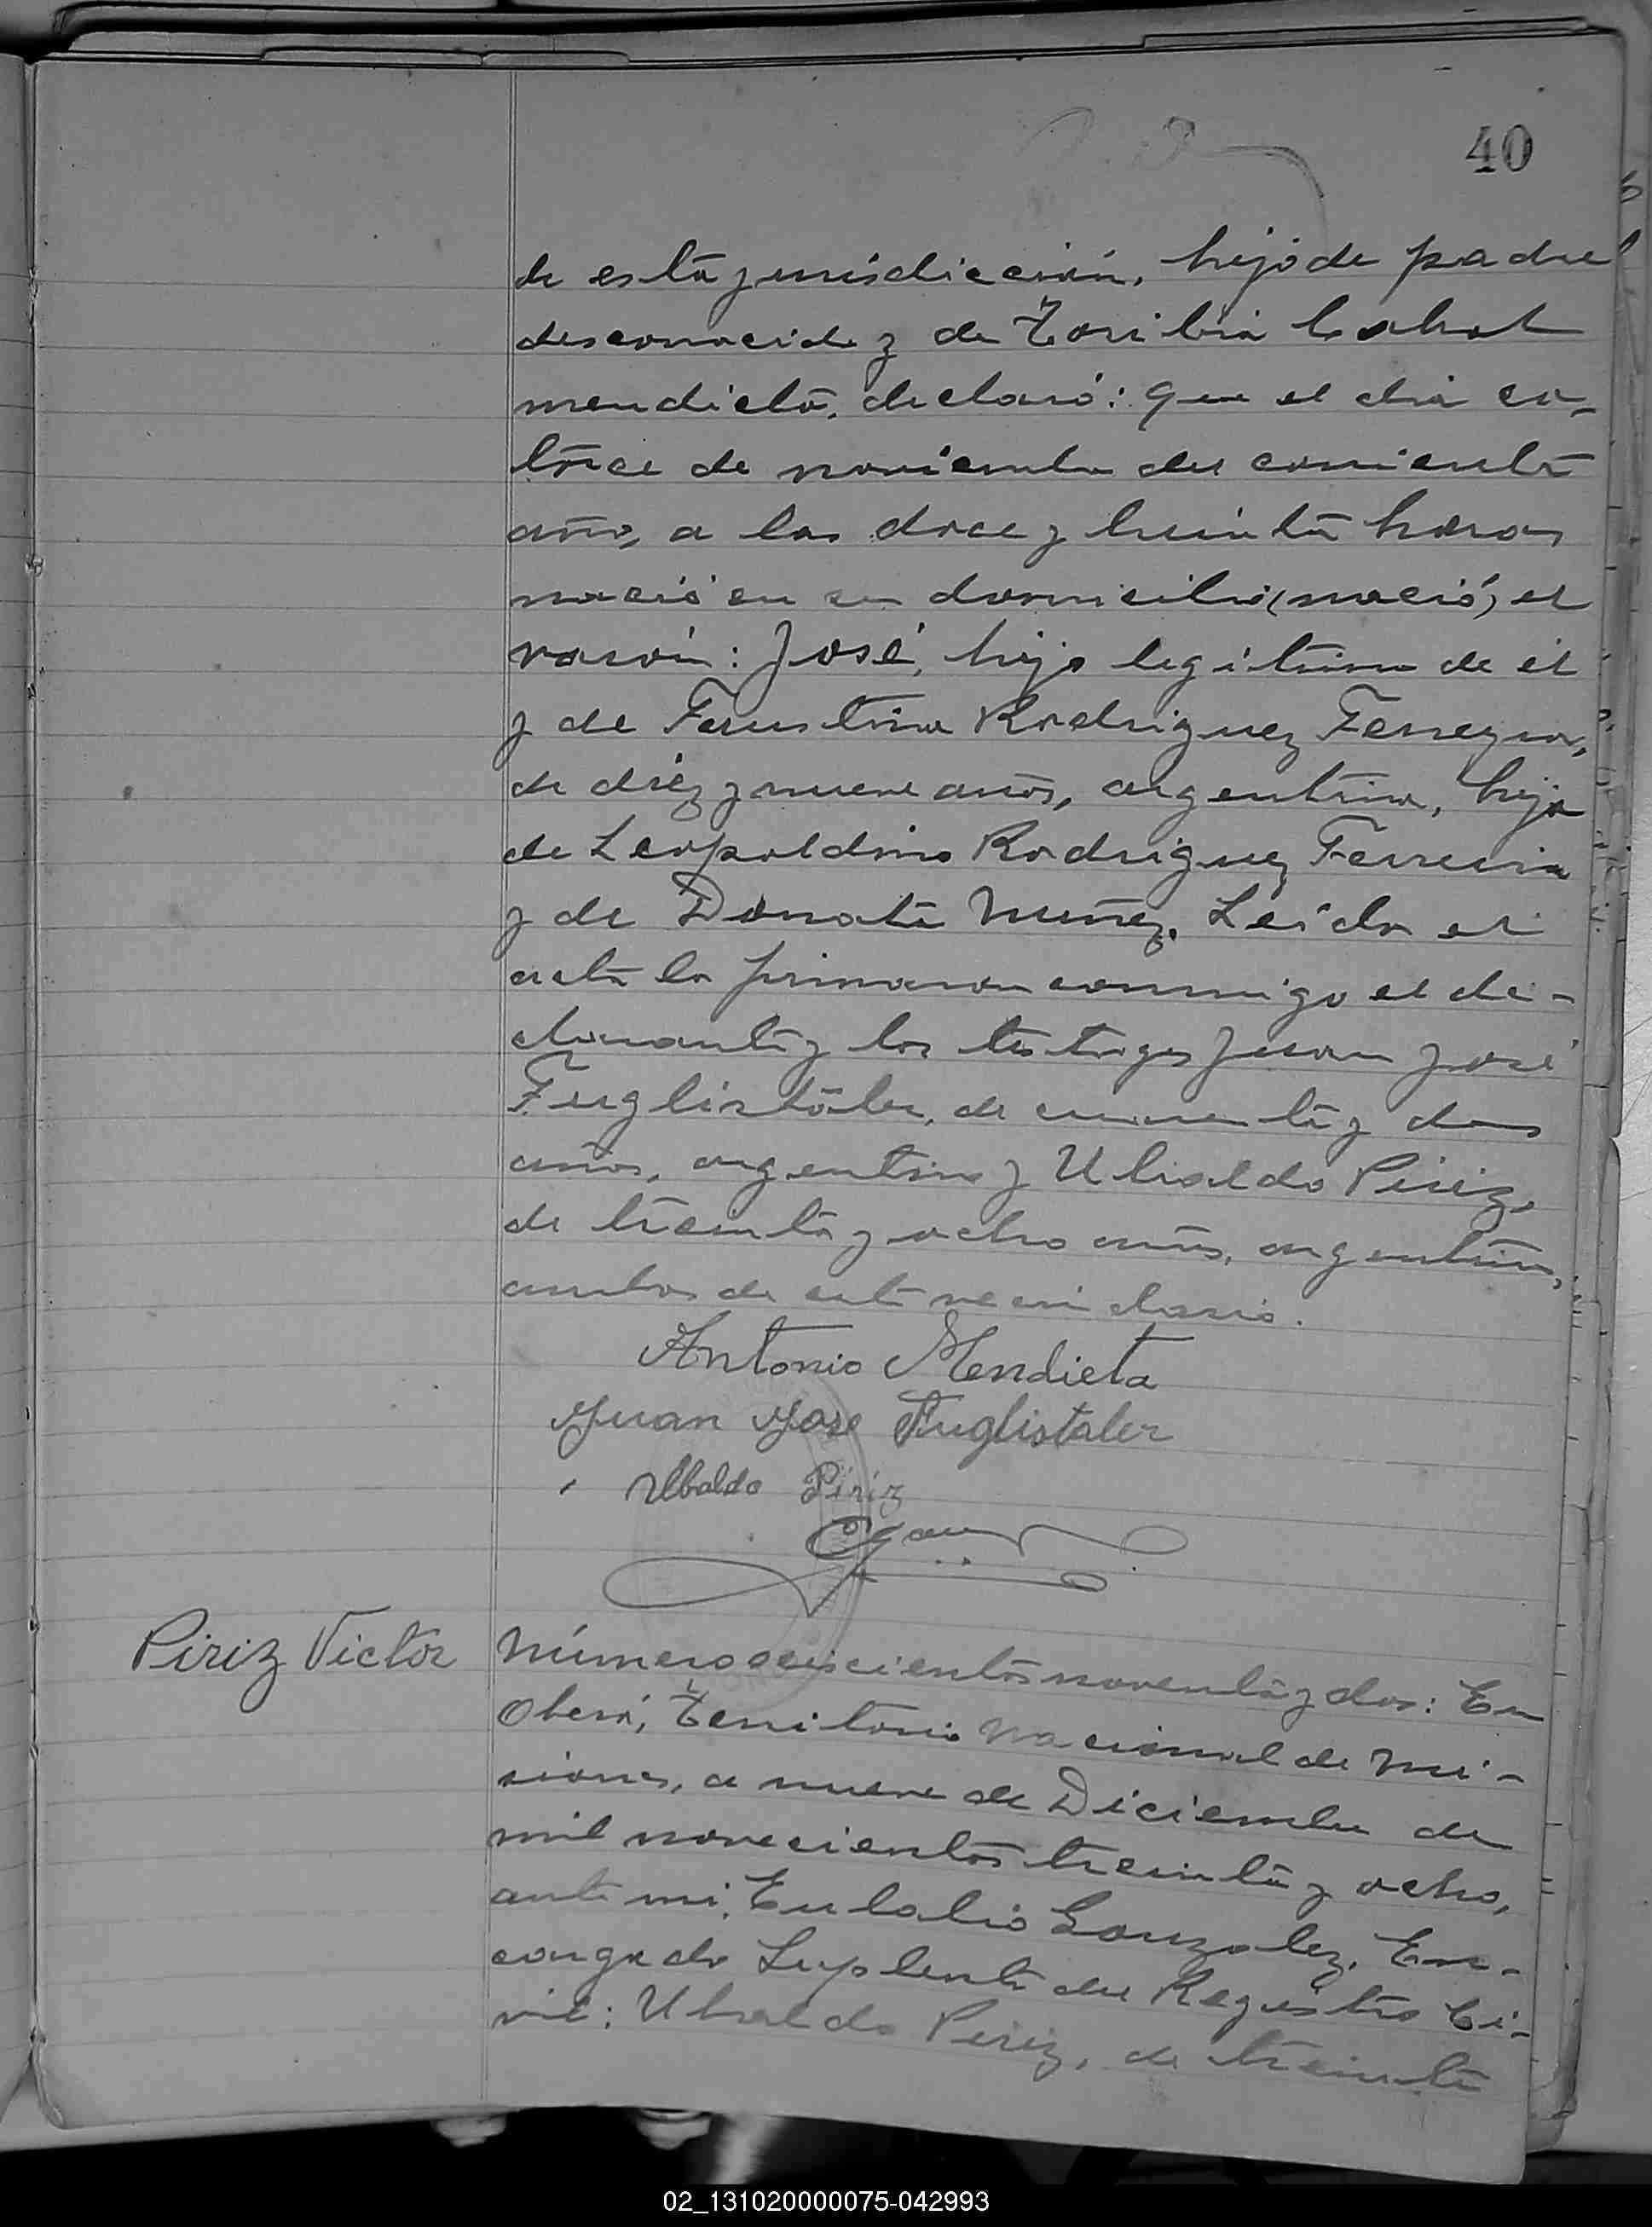 40
de esta jurisdiccion, hijo de padre
desconocido y de Toribia Cabral
mendieta, declaró: que el dia ca-
torce de noviembre del corriente
año, a las doce y treinta horas
nació en su domicilio (nació) el
varón: José, hijo legitimo de él
y de Faustina Rodriguez Ferreyra,
de diez y nueve años, argentina, hija
de Leopoldino Rodriguez Ferreira
y de Donata Nuñez. Leida el
acta la firmaron conmigo el de-
clarante y los testigos Juan José
Fuglistaler, de cuarenta y dos
años, argentino y Ubaldo Piriz,
de treinta y ocho años, argentino,
ambos de este vecindario.
Antonio Mendieta
Juan Jose Fuglistaler
Ubaldo Piriz
Piriz Victor
Número seiscientos noventa y dos: En
Oberá, Territorio Nacional de Mi-
siones, a nueve de Diciembre de
mil novecientos treinta y ocho,
ante mi, Eulalio Gonzalez, En-
cargado Suplente del Registro Ci-
vil: Ubaldo Piriz, de treinta
02_131020000075-042993